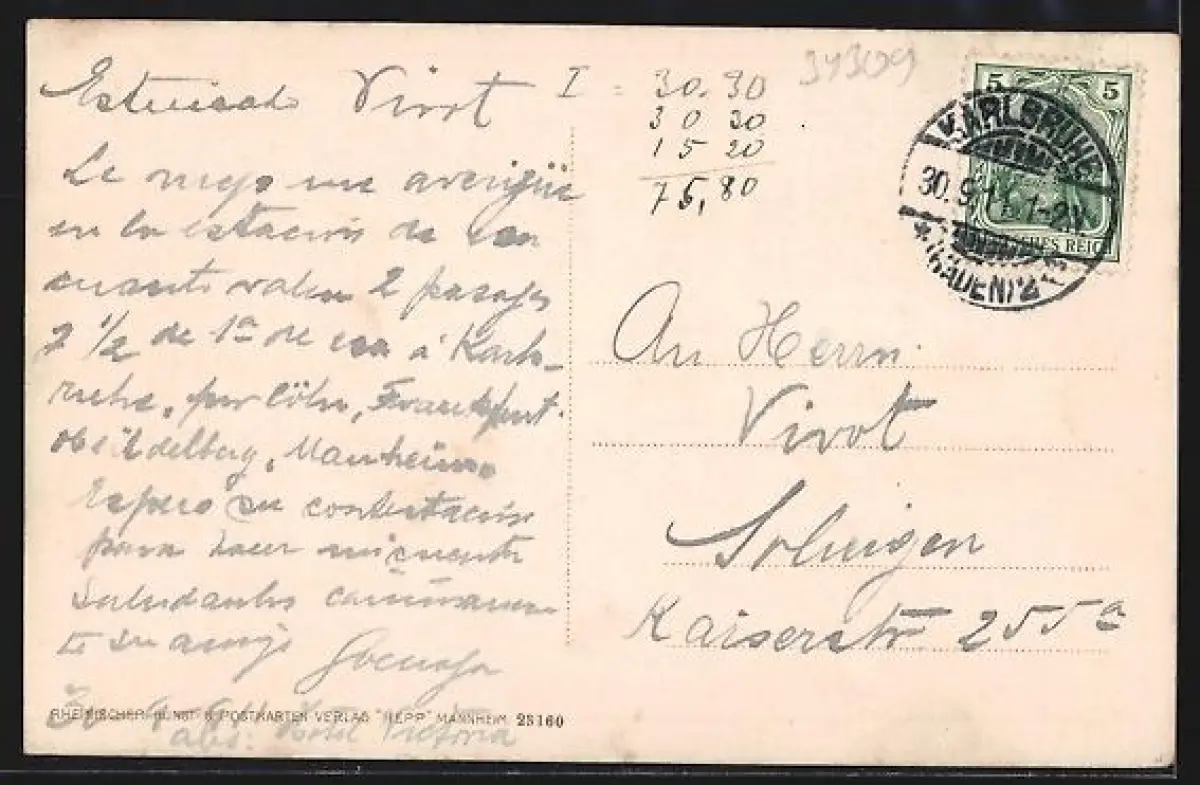 Estimado Vivot
Le ruego me averigüe
en la estación de esa
cuanto valen 2 pasajes
y 1/2 de 1ª de esa á Karls-
ruhe, por Cöln, Frankfurt.
Heidelberg, Manheim.
Espero su contestación
para hacer mi cuenta
Saludando cariñosamen
te su amigo
30
abs: Hotel Victoria
RHEINISCHER KUNST U. POSTKARTEN VERLAG "REPP" MANNHEIM 23160
I = 30.30
30 30
15 20
75,80
34309
5 5
DEUTSCHES REICH
KARLSRUHE
30.9.11. 1-2N
*(BADEN) 2
An Herrn
Vivot
Solingen
Kaiserstr 255a